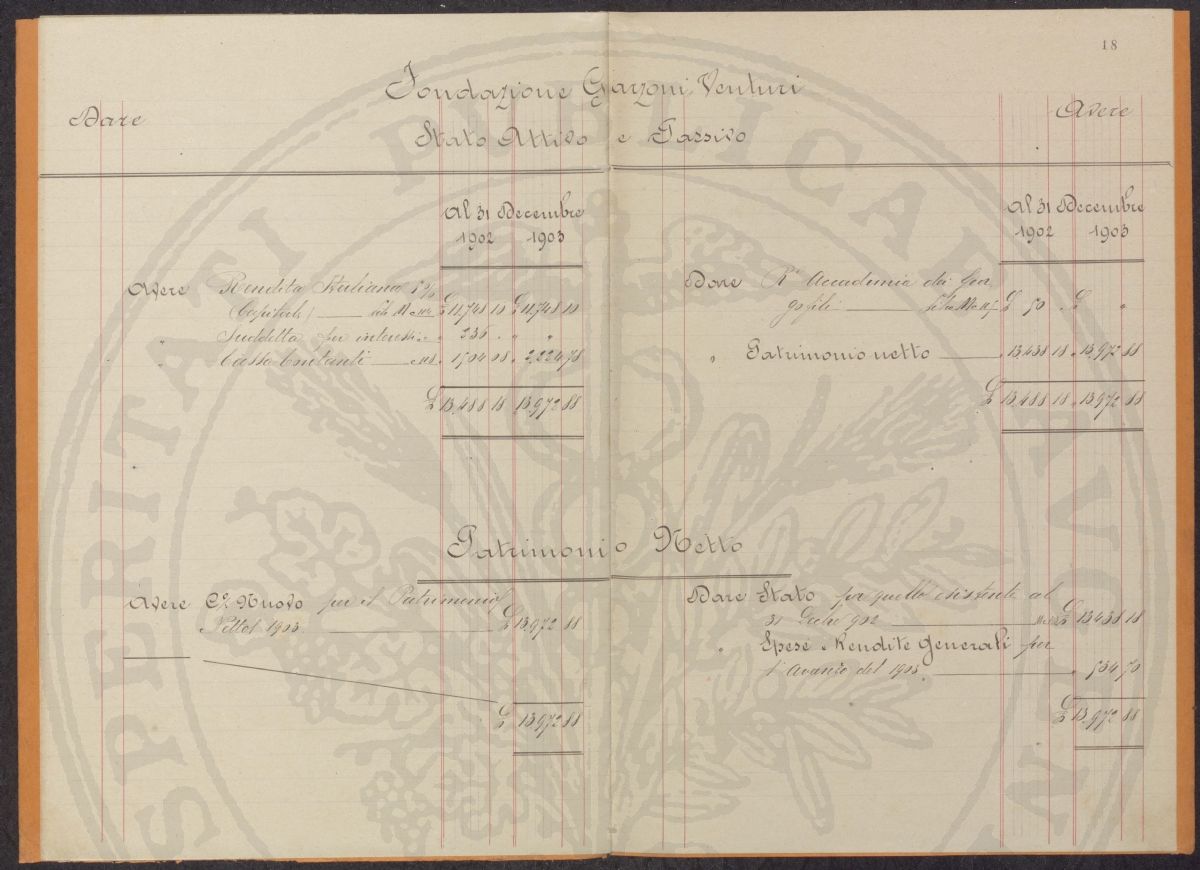 18
Fondazione Garzoni Venturi
Dare
Avere
Stato Attivo e Passivo
Al 31 Decembre
1902 1903
Avere Rendita Italiana 5%
(Capitale) £ 11,748 10 £ 11,748 10
" Suddetta per interessi " 236 " " "
" Cassa Contanti " 1,704 08 " 2,224 78
£ 13,488 18 " 13,972 88
Al 31 Decembre
1902 1903
Dare Rª Accademia dei Geor
gofili £ 50 " £ "
" Patrimonio netto " 13,438 18 " 13,972 88
£ 13,488 18 " 13,972 88
Patrimonio Netto
Avere Cº Nuovo per il Patrimonio
Netto 1903 £ 13,972 88
£ 13,972 88
Dare Stato per quello esistente al
31 Decbre 902 £ 13,438 18
" Spese e Rendite Generali per
l'avanzo del 1903 " 534 70
£ 13,972 88
SPERITATI PUBLICAE AUGEN